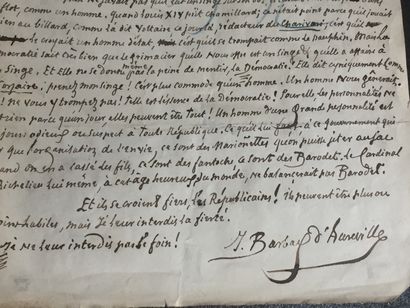 flot, comme un homme, quand Louis XIV prit Chamillard, c'était point parce qu'il jouait
bien au billard, comme l'a dit Voltaire ce jour là, rédacteur du Charivari, c'est qu'il
le croyait un homme d'état, mais c'est qu'il se trompait comme le dauphin. Mais la
Démocratie sait bien que le grimacier qu'elle nous offre est un Singe et qu'elle a affaire à
Singe. Et Elle ne se donne pas la peine de mentir, la Démocratie! Elle dit cyniquement Comme
Corsaire: prenez mon singe! C'est plus commode qu'un homme. Un homme nous gênerait.
ne vous y trompez pas! Telle est l'essence de la Démocratie! Pour elle les personnalités ne
rien parce qu'un jour elles peuvent être Tout! Un homme d'une Grande personnalité est
jours odieux ou suspect à Toute République. Ce qu'il lui faut à ce gouvernement qui
que l'organisation de l'envie, ce sont des Marionettes qu'on puisse jeter au sac
quand on en a cassé les fils, ce sont des fantoches, ce sont des Barodet. Le Cardinal
Richelieu lui même, à cet âge heureux du monde, ne balancerait pas Barodet.
Et ils se croient fiers les Républicains! Ils peuvent être plus ou
moins habiles, mais Je leur interdis la fierté.
Je ne leur interdis pas le foin!
J. Barbey d'Aurevilly